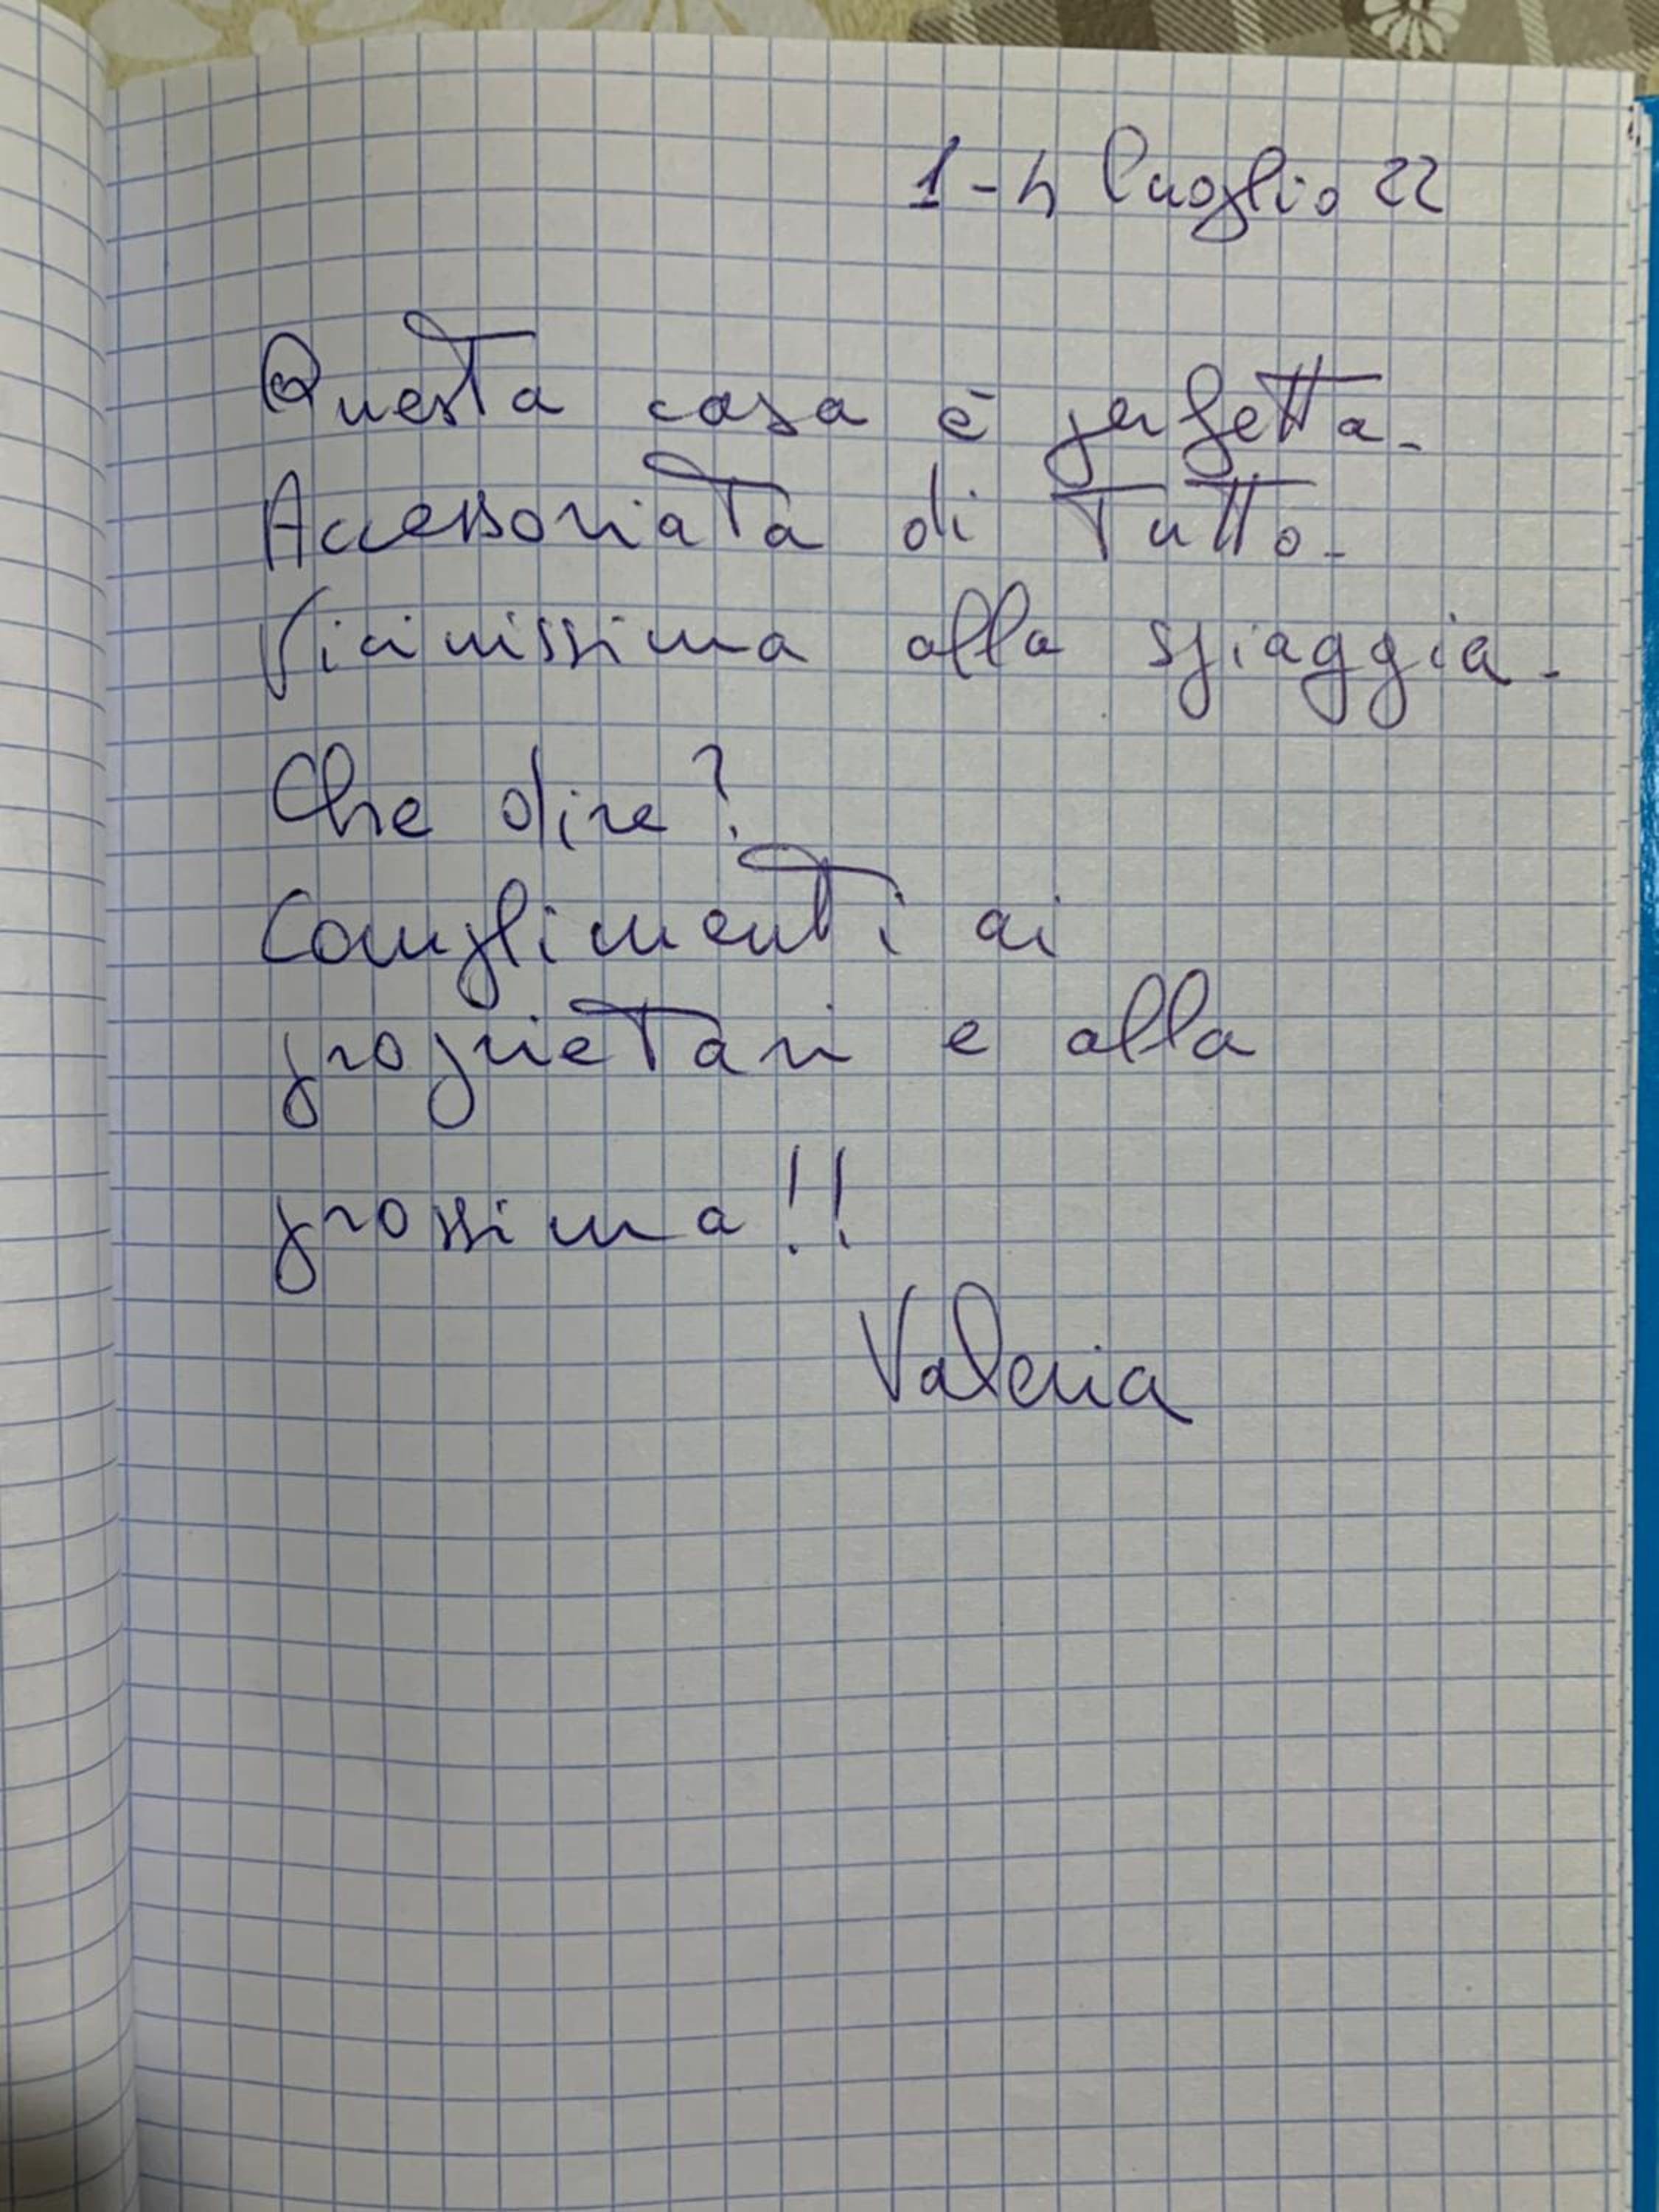 1-4 luglio 22
Questa casa è perfetta.
Accessoriata di tutto.
Vicinissima alla spiaggia.
Che dire?
Complimenti ai
proprietari e alla
prossima!!
Valeria